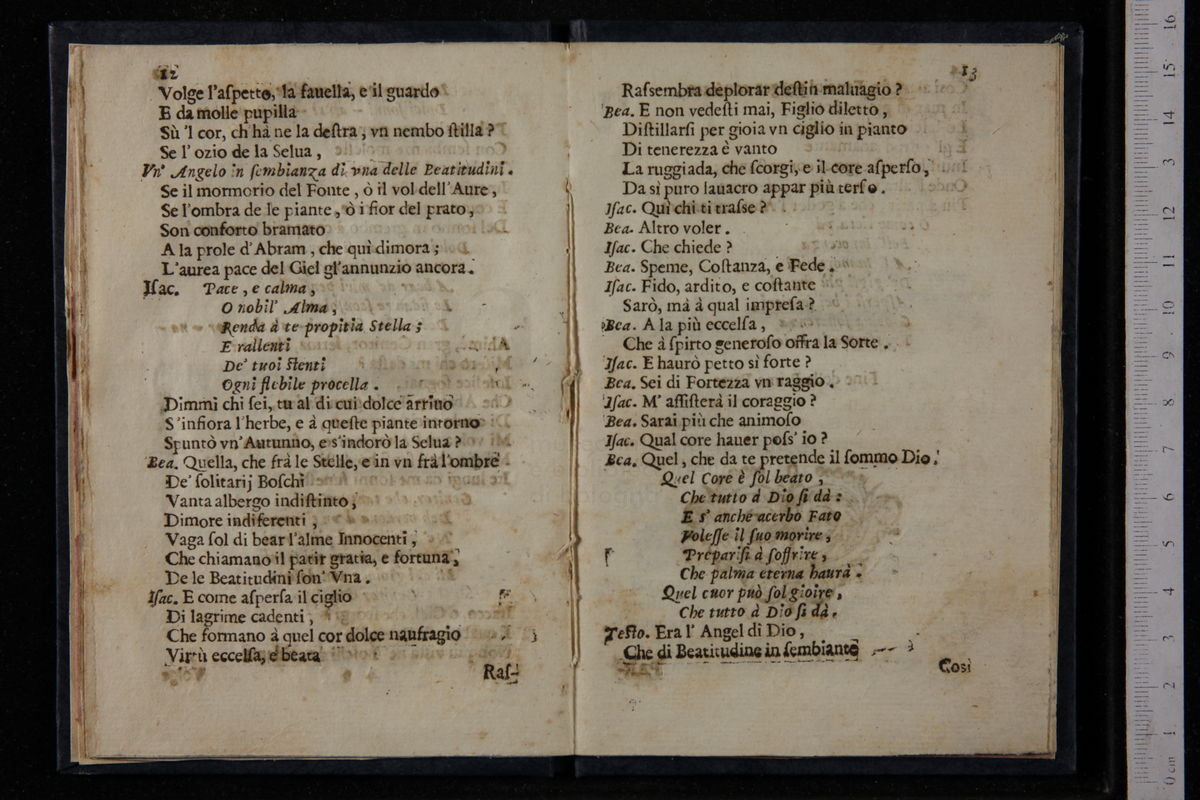 12
Volge l'aſpetto, la fauella, e il guardo
E da molle pupilla
Sù 'l cor, ch' hà ne la deſtra, vn nembo ſtilla?
Se l' ozio de la Selua,
Vn' Angelo in ſembianza di vna delle Beatitudini.
Se il mormorio del Fonte, ò il vol dell'Aure,
Se l'ombra de le piante, ò i fior del prato,
Son conforto bramato
A la prole d'Abram, che quì dimora;
L'aurea pace del Ciel gl'annunzio ancora.
Iſac. Pace, e calma,
O nobil' Alma,
Renda à te propitia Stella;
E rallenti
De' tuoi ſtenti
Ogni flebile procella.
Dimmi chi ſei, tu al di cui dolce arriuo
S'infiora l'herbe, e à queſte piante intorno
Spuntò vn'Autunno, e s'indorò la Selua?
Bea. Quella, che frà le Stelle, e in vn frà l'ombre
De' ſolitarij Boſchi
Vanta albergo indiſtinto,
Dimore indiferenti,
Vaga ſol di bear l'alme Innocenti,
Che chiamano il patir gratia, e fortuna,
De le Beatitudini ſon' Vna.
Iſac. E come aſperſa il ciglio
Di lagrime cadenti,
Che formano à quel cor dolce naufragio
Virtù eccelſa, e beata
Raſ-
13
Raſsembra deplorar deſtin maluagio?
Bea. E non vedeſti mai, Figlio diletto,
Diſtillarſi per gioia vn ciglio in pianto
Di tenerezza è vanto
La ruggiada, che ſcorgi, e il core aſperſo,
Da sì puro lauacro appar più terſo.
Iſac. Quì chi ti traſse?
Bea. Altro voler.
Iſac. Che chiede?
Bea. Speme, Coſtanza, e Fede.
Iſac. Fido, ardito, e coſtante
Sarò, mà à qual impreſa?
Bea. A la più eccelſa,
Che à ſpirto generoſo offra la Sorte.
Iſac. E haurò petto sì forte?
Bea. Sei di Fortezza vn raggio.
Iſac. M' aſſiſterà il coraggio?
Bea. Sarai più che animoſo
Iſac. Qual core hauer poſs' io?
Bea. Quel, che da te pretende il ſommo Dio.
Quel Core è ſol beato,
Che tutto à Dio ſi dà:
E s' anche acerbo Fato
Voleſſe il ſuo morire,
Prepariſi à ſoffrire,
Che palma eterna haurà.
Quel cuor può ſol gioire,
Che tutto à Dio ſi dà.
Teſto. Era l' Angel di Dio,
Che di Beatitudine in ſembiante
Così